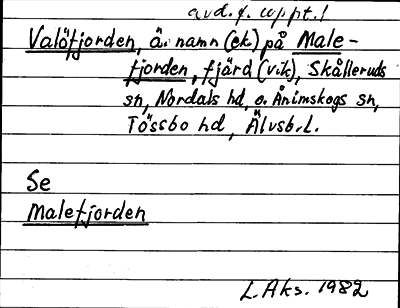 avd. f. uppt.!
Valöfjorden, ä. namn (ek.) på Male-
fjorden, fjärd (vik), Skålleruds
sn, Nordals hd, o. Ånimskogs sn,
Tössbo hd, Älvsb. l.
Se
Malefjorden
L. Aks. 1982